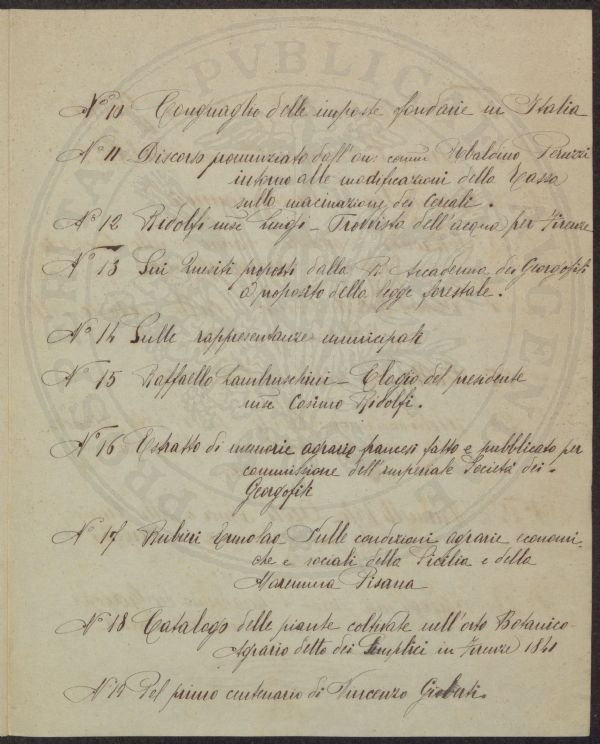 N° 10 Conguaglio delle imposte fondarie in Italia
N° 11 Discorso pronunziato dall'on: comm Ubaldino Peruzzi
intorno alle modificazioni della Tassa
sulla macinazione dei Cereali.
N° 12 Ridolfi mse Luigi - Provvista dell'acqua per Firenze
N° 13 Sui Quesiti proposti dalla R. Accademia dei Georgofili
a proposito della legge forestale.
N° 14 Sulle rappresentanze municipali
N° 15 Raffaello Lambruschini - Elogio del presidente
mse Cosimo Ridolfi.
N° 16 Estratto di memorie agrarie francesi fatto e pubblicato per
commissione dell'imperiale Società dei
Georgofili
N° 17 Rubieri Ermolao Sulle condizioni agrarie economi-
che e sociali della Sicilia e della
Maremma Pisana
N° 18 Catalogo delle piante coltivate nell'orto Botanico-
Agrario detto dei Semplici in Firenze 1841
N° 19 Pel primo centenario di Vincenzo Gioberti.